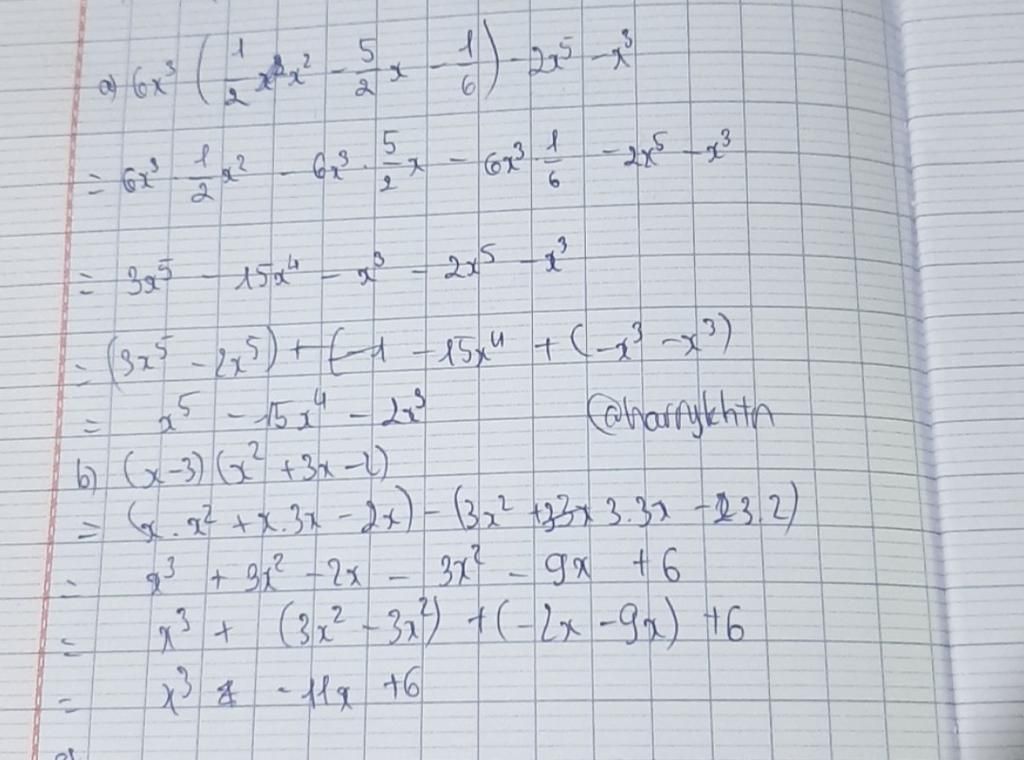 a) 6x³ (1/2 x² - 5/2 x - 1/6) - 2x⁵ - x³
= 6x³ · 1/2 x² - 6x³ · 5/2 x - 6x³ · 1/6 - 2x⁵ - x³
= 3x⁵ - 15x⁴ - x³ - 2x⁵ - x³
= (3x⁵ - 2x⁵) + - 15x⁴ + (-x³ - x³)
= x⁵ - 15x⁴ - 2x³
@harrykhtn
b) (x-3) (x² + 3x - 2)
= (x . x² + x . 3x - 2x) - (3x² + 3.3x - 3.2)
= x³ + 3x² - 2x - 3x² - 9x + 6
= x³ + (3x² - 3x²) + (-2x - 9x) + 6
= x³ - 11x + 6